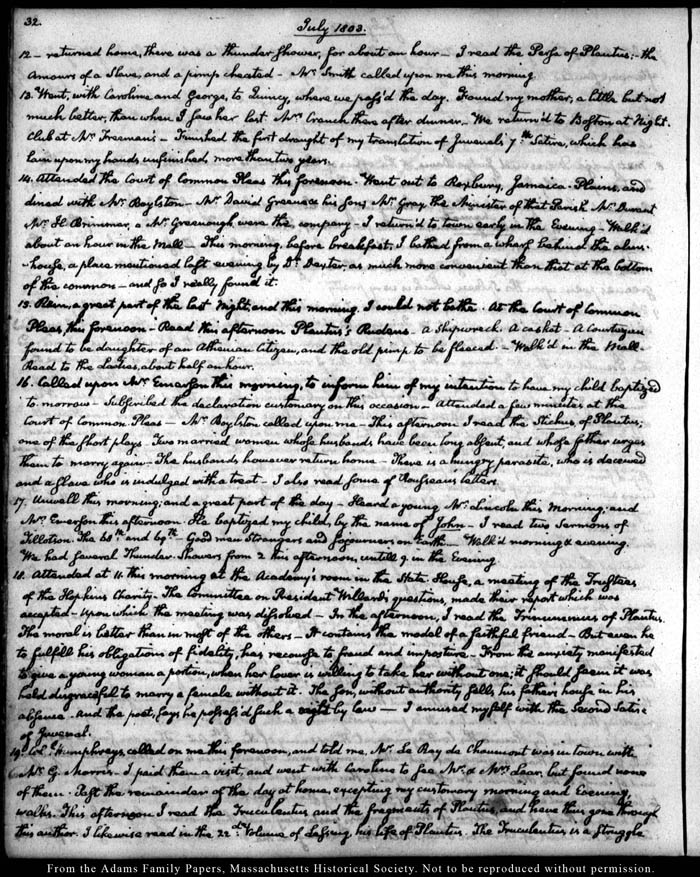 32.
July 1803.
12 - returned home, there was a thunder shower, for about an hour - I read the Persa of Plautus; - the
Amours of a Slave, and a pimp cheated - Mr. Smith called upon me this morning.
13. Went, with Caroline and George, to Quincy, where we pass'd the day. Found my mother, a little but not
much better, than when I saw her last. Mrs. Cranch there after dinner - We return'd to Boston at Night.
Club at Mr. Freeman's - Finished the first draught of my translation of Juvenal's 7th Satire, which has
lain upon my hands unfinished, more than two years.
14. Attended the Court of Common Pleas this forenoon. Went out to Roxbury, Jamaica-Plains, and
dined with Mr. Boylston - Mr. David Greene & his Son, Mr. Gray, the Minister of that Parish Mr.
Mr. H. Brimmer, a Mr. Greenough, were the company - I return'd to town early in the Evening - Walk'd
about an hour in the Mall - This morning, before breakfast, I bathed from a wharf behind the alms-
-house, a place mentioned last evening by Dr. Dexter, as much more convenient than that at the bottom
of the common - and so I really found it.
15. Rain, a great part of the last Night, and this morning. I could not bathe. At the Court of Common
Pleas, this forenoon - Read this afternoon Plautus's Rudens - a Shipwreck. A casket - A Courtezan
found to be daughter of an Athenian Citizen, and the old pimp to be fleeced - Walk'd in the Mall -
Read to the Ladies, about half an hour.
16. Called upon Mr. Emerson this morning, to inform him of my intention to have my child baptized
to morrow - Subscribed the declaration customary on this occasion - Attended a few minutes at the
Court of Common Pleas - Mr. Boylston called upon me - This afternoon I read the Stichus of Plautus;
one of the short plays. Two married women whose husbands have been long absent, and whose father urges
them to marry again - The husbands however return home - There is a hungry parasite, who is deceived
and a slave who is indulged with a treat - I also read some of Rousseau's letters.
17. Unwell this morning; and a great part of the day - Heard a young Mr. Lincoln this Morning; and
Mr. Emerson this afternoon. He baptized my child, by the name of John - I read two Sermons of
Tillotson. The 68th and 69th. Good men Strangers and Sojourners on Earth - Walk'd morning & evening.
We had several Thunder-Showers from 2 this afternoon, untill 9 in the Evening
18. Attended at 11. this morning at the Academy's room in the State-House, a meeting of the Trustees
of the Hopkins Charity - The Committee on President Willard's questions, made their report which was
accepted - upon which the meeting was dissolved - In the afternoon, I read the Trinummus of Plautus.
The moral is better than in most of the others - It contains the model of a faithful friend - But even he
to fulfill his obligations of fidelity, has recourse to fraud and imposture - From the anxiety manifested
to give a young woman a portion, when her lover is willing to take her without one; it should seem it was
held disgraceful to marry a female without it. The Son, without authority sells, his father's house in his
absence - And the poet, says he possess'd such a right by law - I amused myself with the Second Satire
of Juvenal.
19. Coll. Humphreys, called on me this forenoon, and told me, Mr. Le Ray de Chaumont was in town with
Mr. G. Morris. I paid them a visit, and went with Caroline to see Mr. & Mrs. Lear, but found none
of them. Past the remainder of the day at home, excepting my customary morning and Evening
walks. This afternoon I read the Truculentus and the fragments of Plautus, and have thus gone through
this author. I likewise read in the 22d. Volume of Lessing, his life of Plautus. The Truculentus, is a struggle
From the Adams Family Papers, Massachusetts Historical Society. Not to be reproduced without permission.